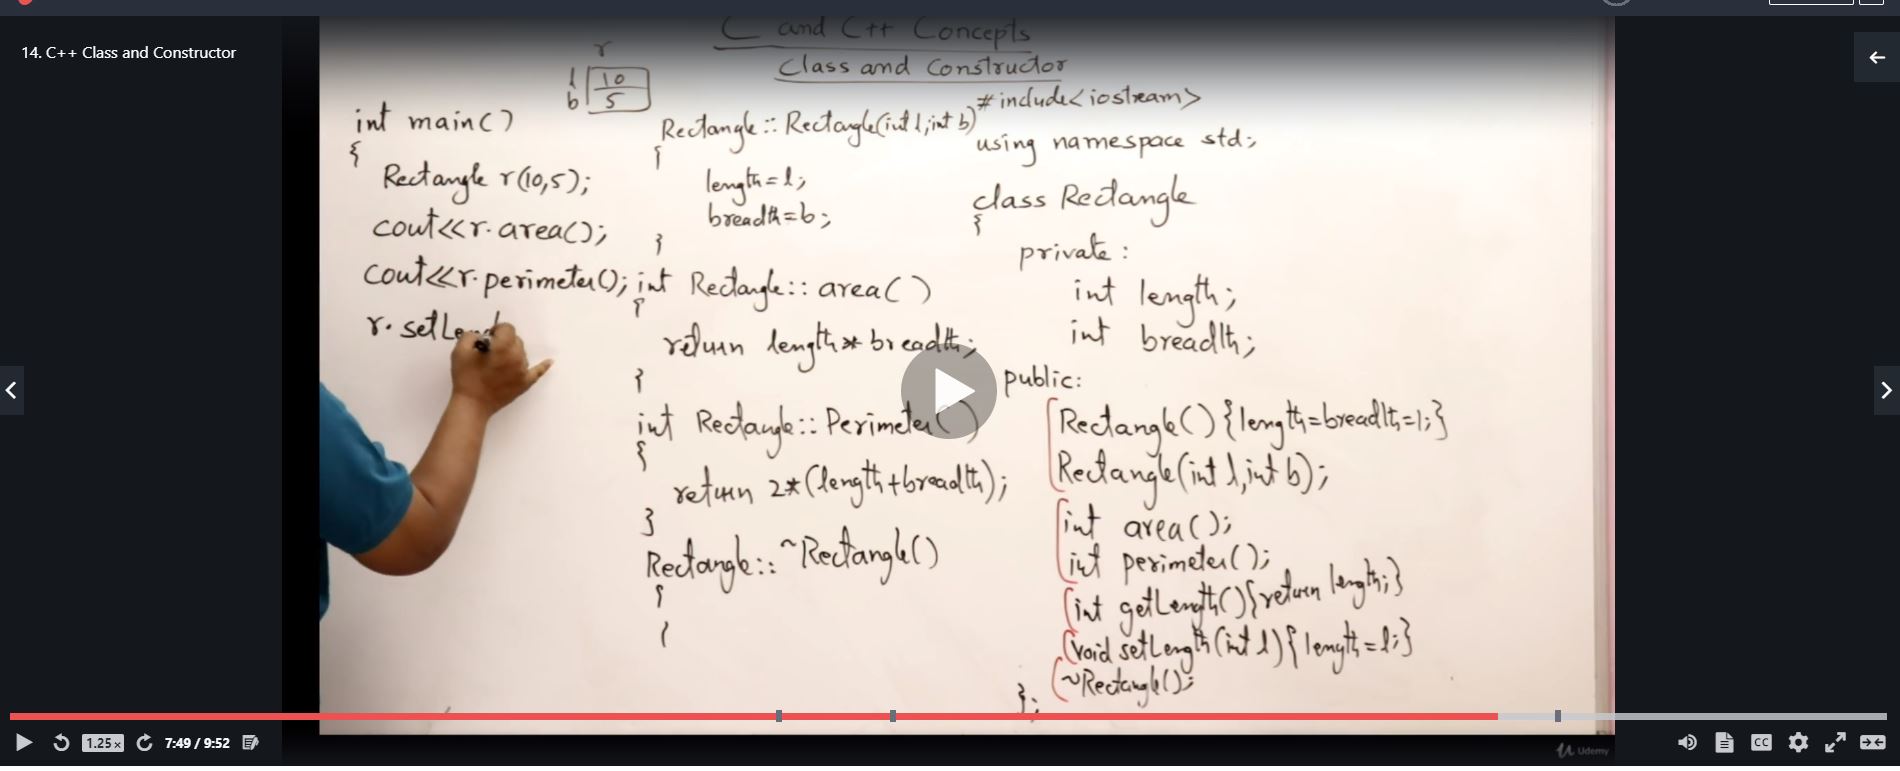 14. C++ Class and Constructor
C and C++ Concepts
Class and Constructor
r
l 10
b 5
int main()
{
Rectangle r(10,5);
cout<<r.area();
cout<<r.perimeter();
r.setLen
Rectangle :: Rectangle(int l,int b)
{
length=l;
breadth=b;
}
int Rectangle:: area()
{
return length*breadth;
}
int Rectangle:: Perimeter()
{
return 2*(length+breadth);
}
Rectangle:: ~Rectangle()
{
#include<iostream>
using namespace std;
class Rectangle
{
private:
int length;
int breadth;
public:
Rectangle(){length=breadth=1;}
Rectangle(int l,int b);
int area();
int perimeter();
int getLength(){return length;}
void setLength(int l){length=l;}
~Rectangle();
};
1.25x
7:49 / 9:52
CC
Udemy